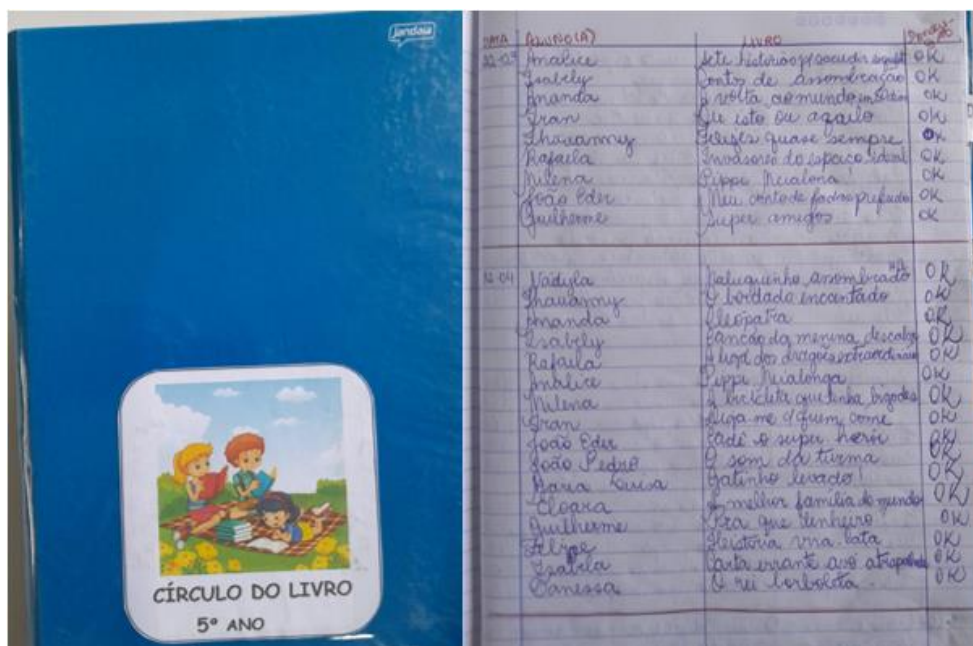 jandaia
CÍRCULO DO LIVRO
5º ANO
DATA ALUNO(A) LIVRO
Analice Sete histórias p/ sacudir OK
Isabely Contos de assombração OK
Amanda A volta ao mundo em OK
Iran Ou isto ou aquilo OK
Thauanny Felizes quase sempre OK
Rafaela Invasores do espaço OK
Milena Pippi Meialonga OK
João Eder Meu conto de fadas preferido OK
Guilherme Super amigos OK
Nadyla assombrado OK
Thauanny O bordado encantado OK
Amanda Cleopatra OK
Isabely Canção da menina descalça OK
Rafaela dos dragões extraordinários OK
Analice Pippi Meialonga OK
Milena A bicicleta que tinha bigodes OK
Iran Diga-me c/ quem come OK
João Eder Cadê o super herói OK
João Pedro O som da turma OK
Maria Luisa Gatinho levado! OK
Cloara A melhor família do mundo OK
Guilherme Pra que dinheiro OK
Felipe História vira lata OK
Isabela Carta errante avó atrapalhada OK
Vanessa O rei borboleta OK